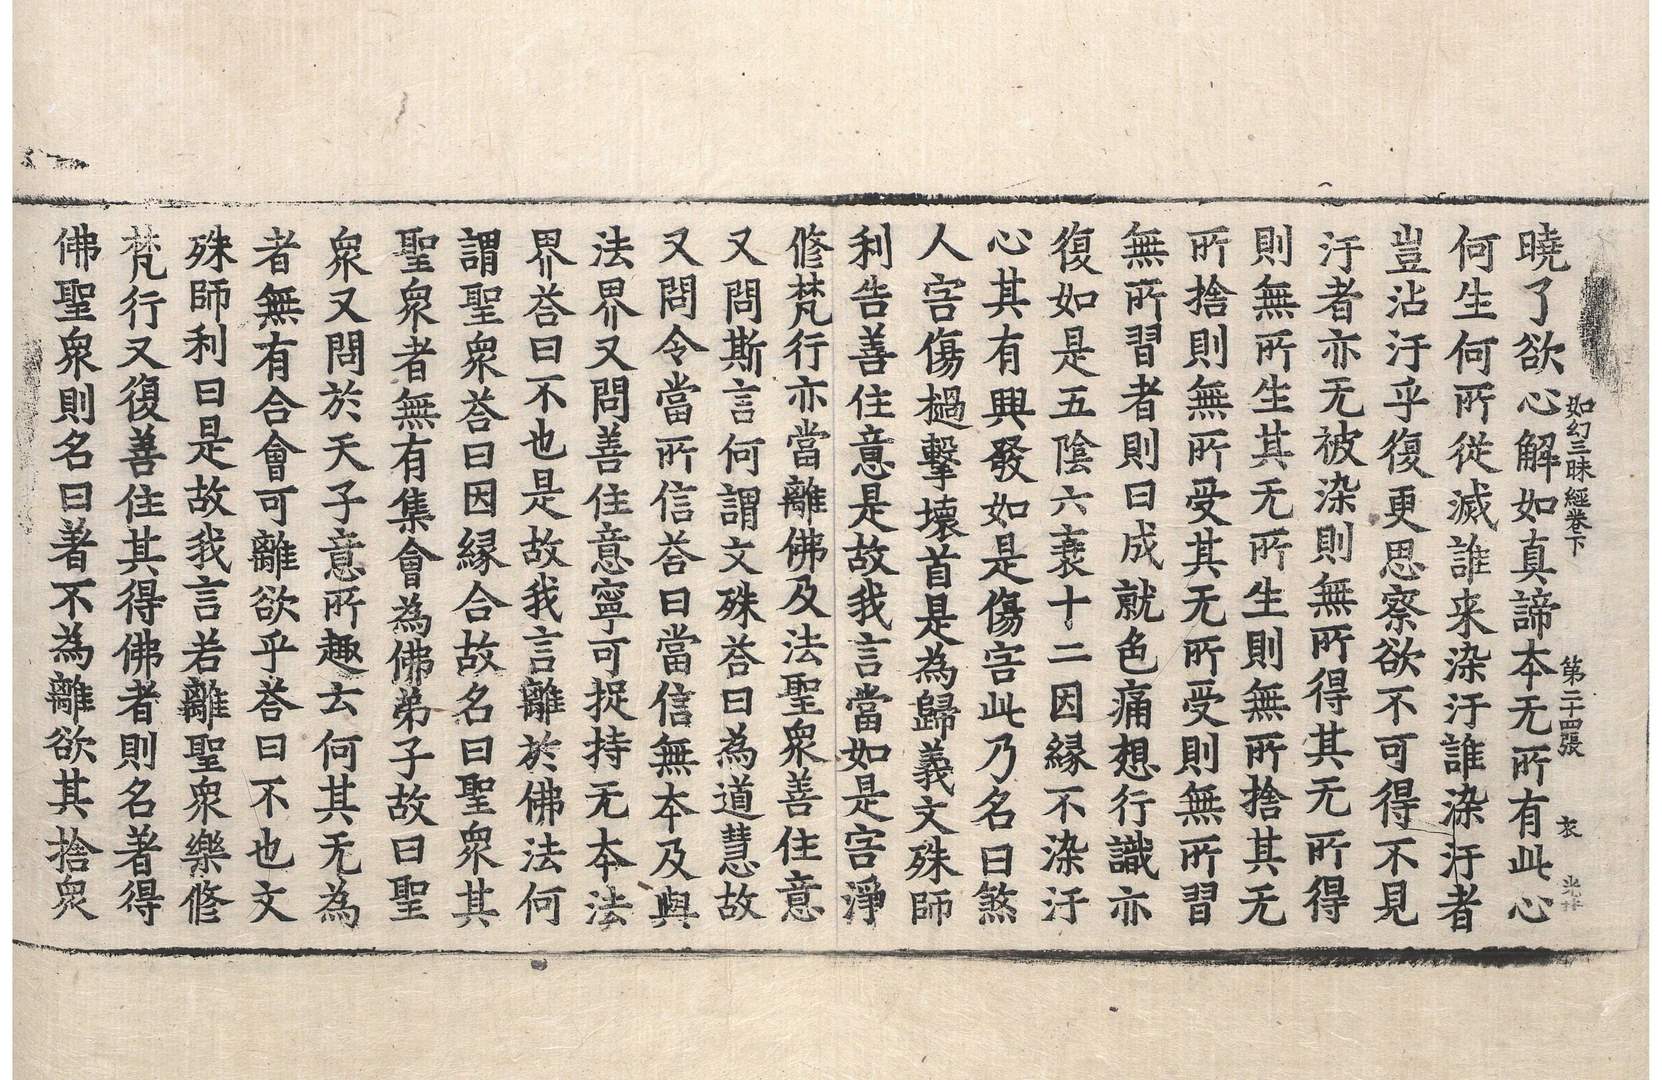 如幻三昧經卷下 第二十四張 衣
曉了欲心解如真諦本无所有此心
何生何所從滅誰来染汙誰染汙者
豈沾汙乎復更思察欲不可得不見
汙者亦无被染則無所得其无所得
則無所生其无所生則無所捨其无
所捨則無所受其无所受則無所習
無所習者則曰成就色痛想行識亦
復如是五陰六衰十二因縁不染汙
心其有興發如是傷害此乃名曰煞
人害傷檛擊壞首是為歸義文殊師
利告善住意是故我言當如是害淨
修梵行亦當離佛及法聖衆善住意
又問斯言何謂文殊荅曰為道慧故
又問令當所信荅曰當信無本及與
法界又問善住意寧可捉持无本法
界荅曰不也是故我言離於佛法何
謂聖衆荅曰因縁合故名曰聖衆其
聖衆者無有集會為佛弟子故曰聖
衆又問於天子意所趣云何其无為
者無有合會可離欲乎荅曰不也文
殊師利曰是故我言若離聖衆樂修
梵行又復善住其得佛者則名著得
佛聖衆則名曰著不為離欲其捨衆